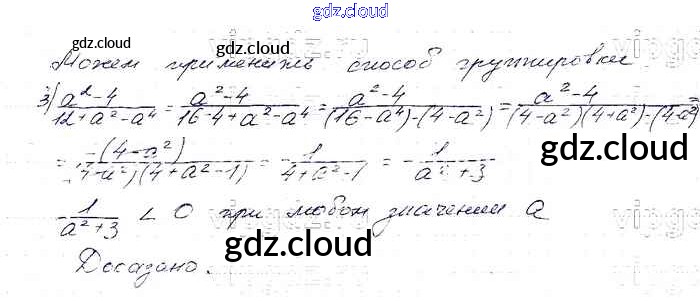 gdz.cloud
gdz.cloud
gdz.cloud
Можем применить способ группировки
3) \frac{a^2-4}{12+a^2-a^4} = \frac{a^2-4}{16-4+a^2-a^4} = \frac{a^2-4}{(16-a^4)-(4-a^2)} = \frac{a^2-4}{(4-a^2)(4+a^2)-(4-a^2)} =
= \frac{-(4-a^2)}{(4-a^2)(4+a^2-1)} = -\frac{1}{4+a^2-1} = -\frac{1}{a^2+3}
gdz.cloud
-\frac{1}{a^2+3} < 0 при любом значении a
gdz.cloud
gdz.cloud
Доказано.